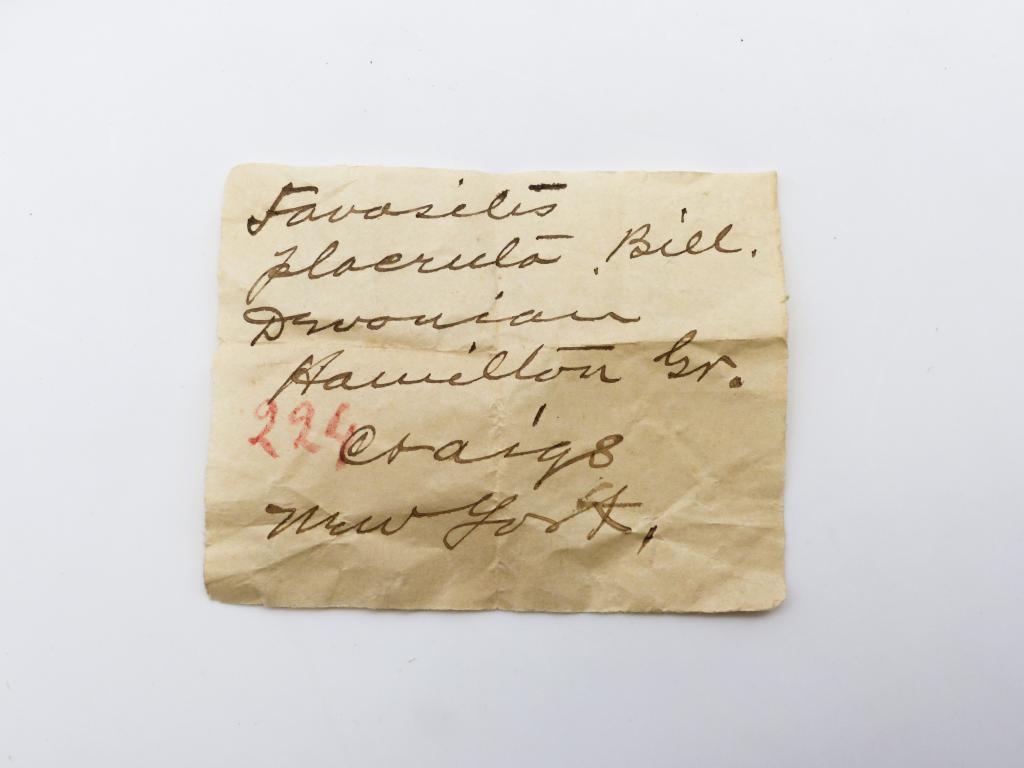 Favosites
placenta. Bill.
Devonian
Hamilton Gr.
224
Craigs
New York,